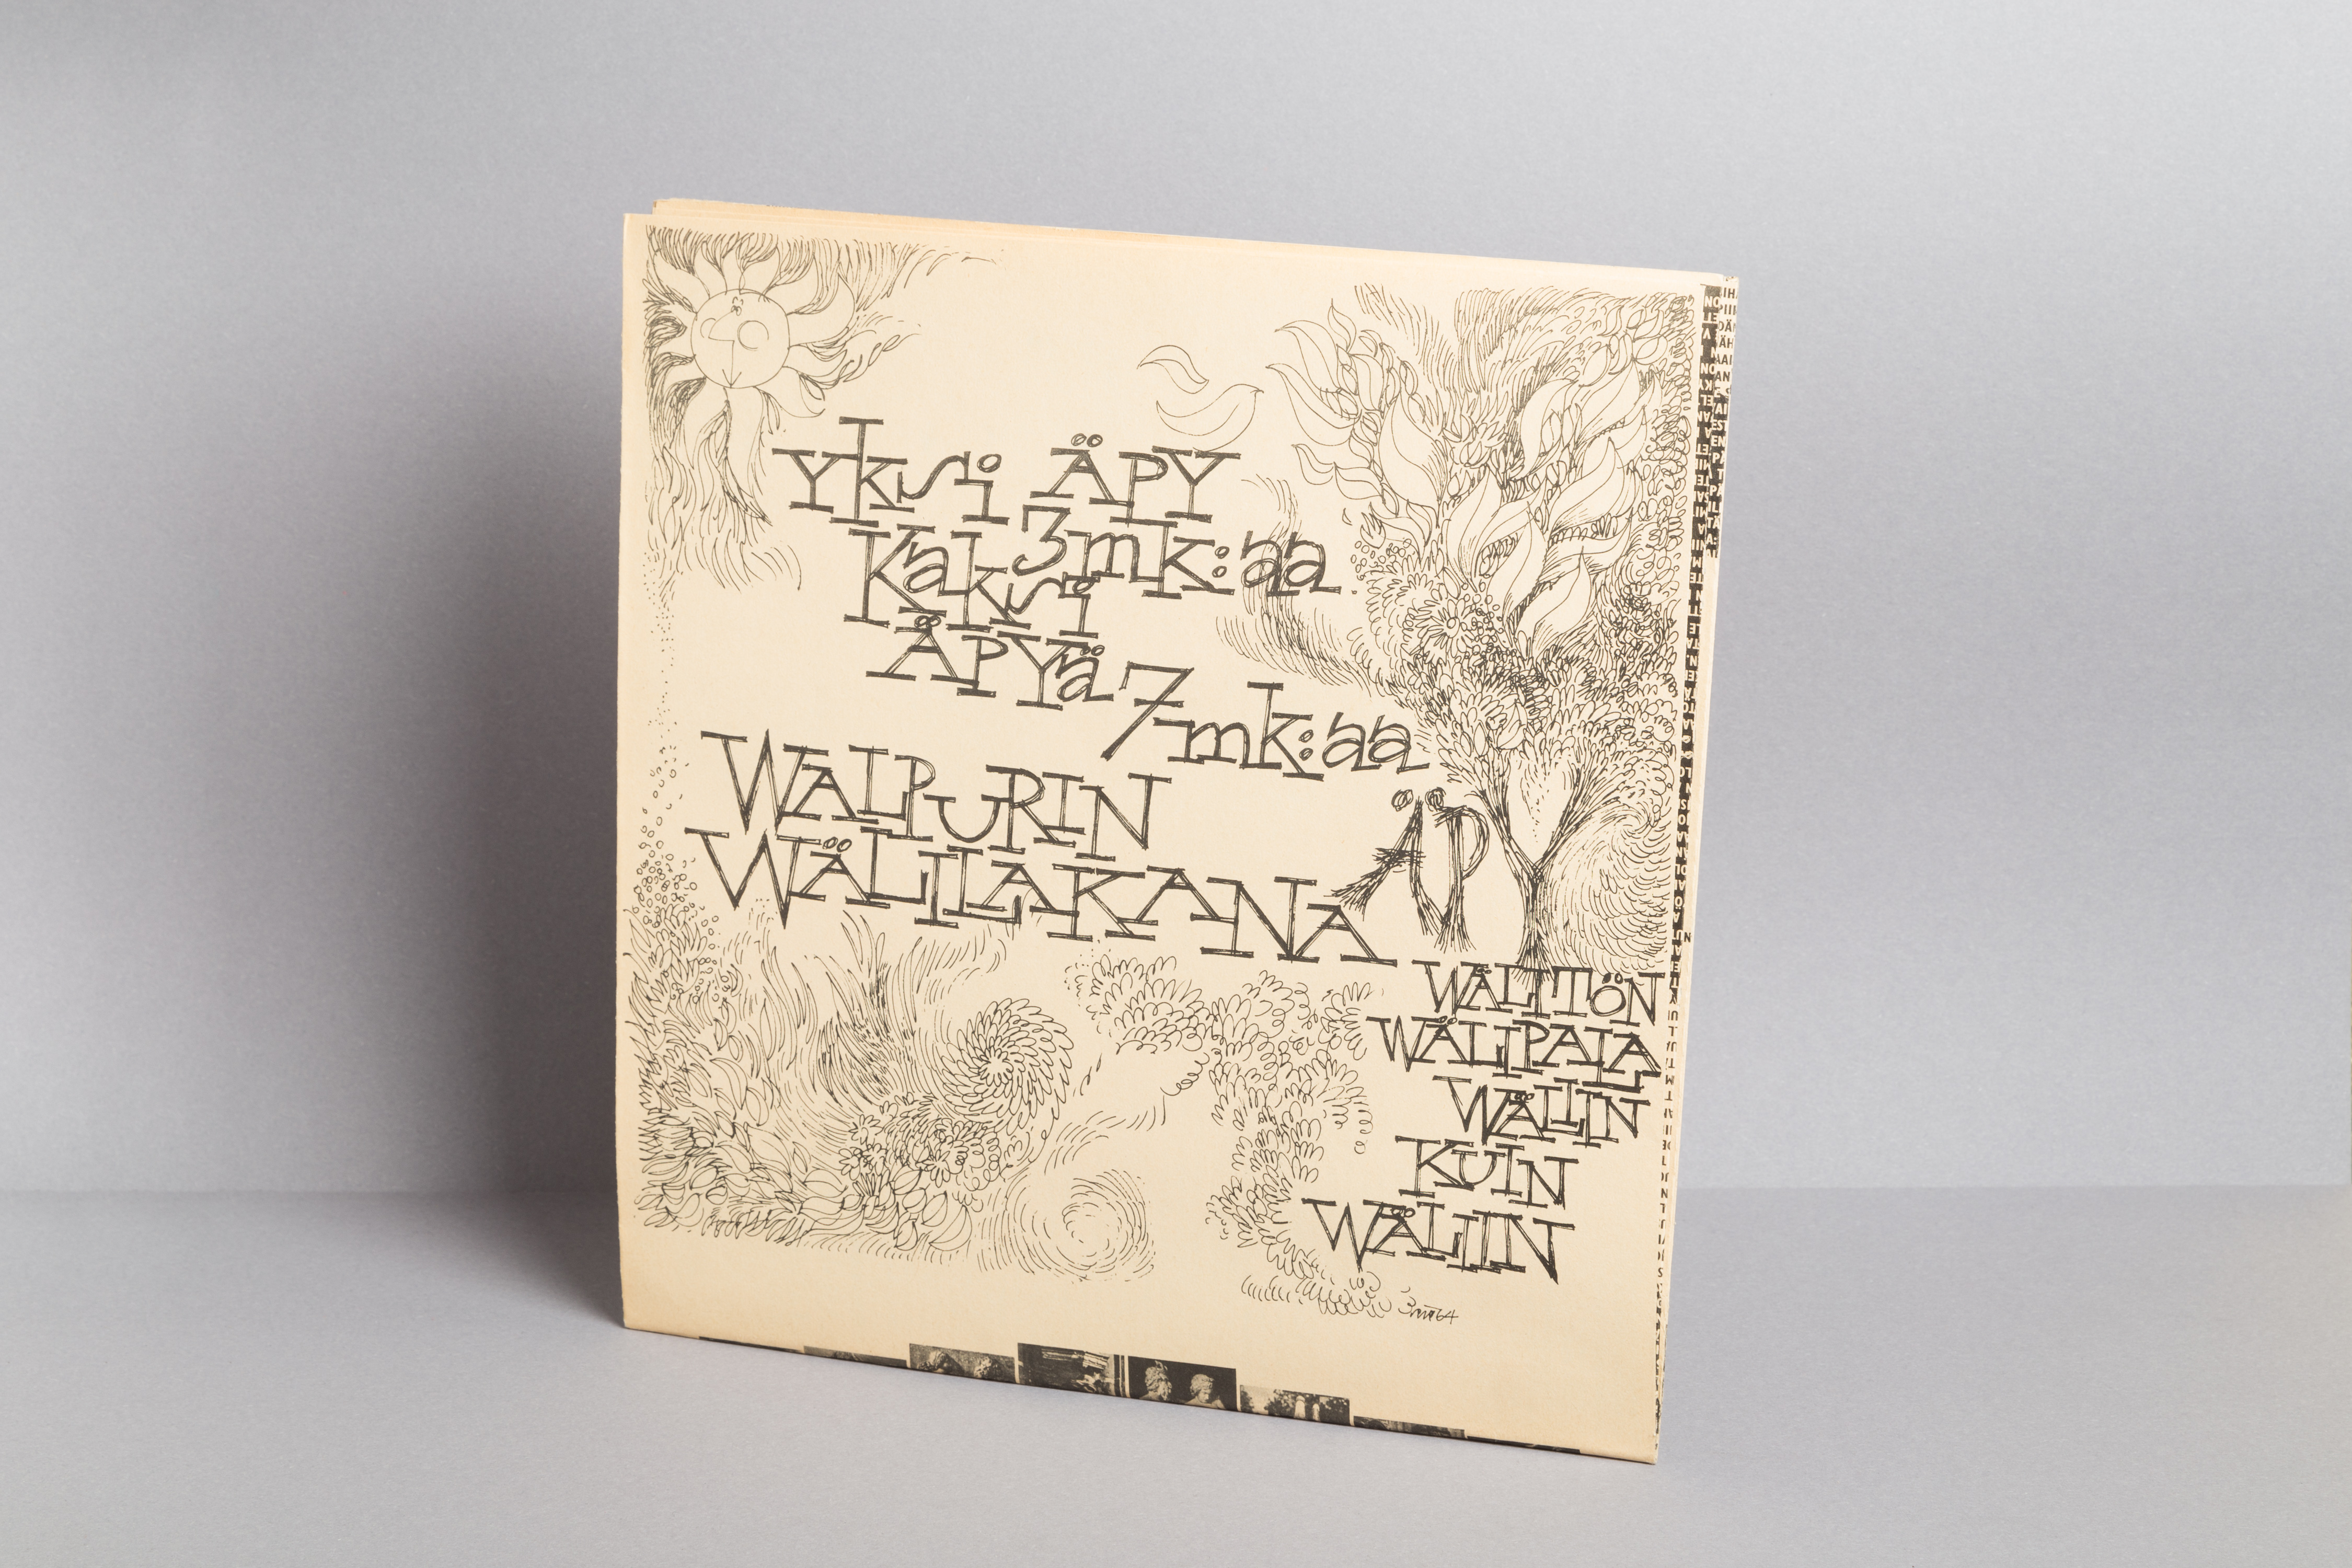 Yksi ÄPY
3mk:aa
Kaksi
ÄPYä 7mk:aa
WALPURIN
WÄLILAKANA
ÄP
WÄLITÖN
WÄLIPALA
WÄLIIN
KUIN
WÄLIIN